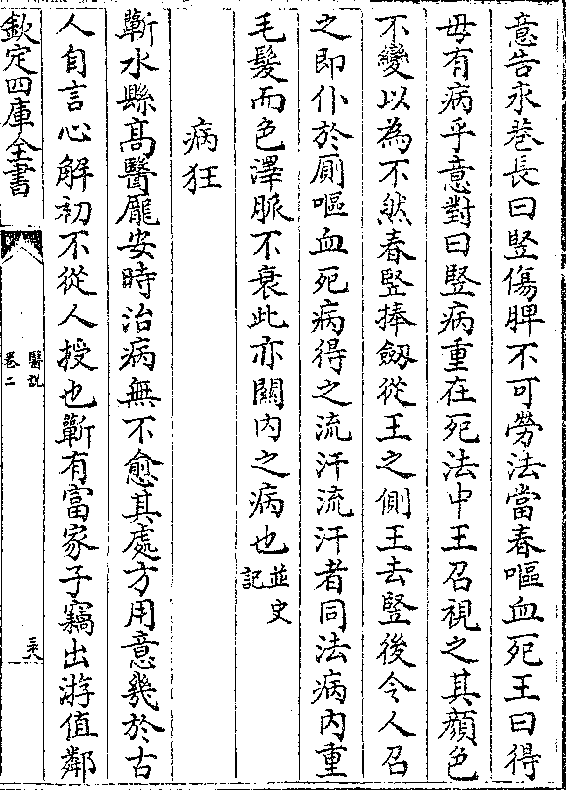 意告永巷長曰竪傷脾不可勞法當春嘔血死王曰得
毋有病乎意對曰竪病重在死法中王召視之其顔色
不變以為不然春竪捧劔從王之側王去竪後令人召
之即仆於厠嘔血死病得之流汗流汗者同法病内重
毛髮而色澤脈不衰此亦關内之病也並史記
病狂
蘄水縣高醫龎安時治病無不愈其處方用意幾於古
人自言心解初不從人授也蘄有富家子竊出游值鄰
欽定四庫全書
醫説
卷二
三六